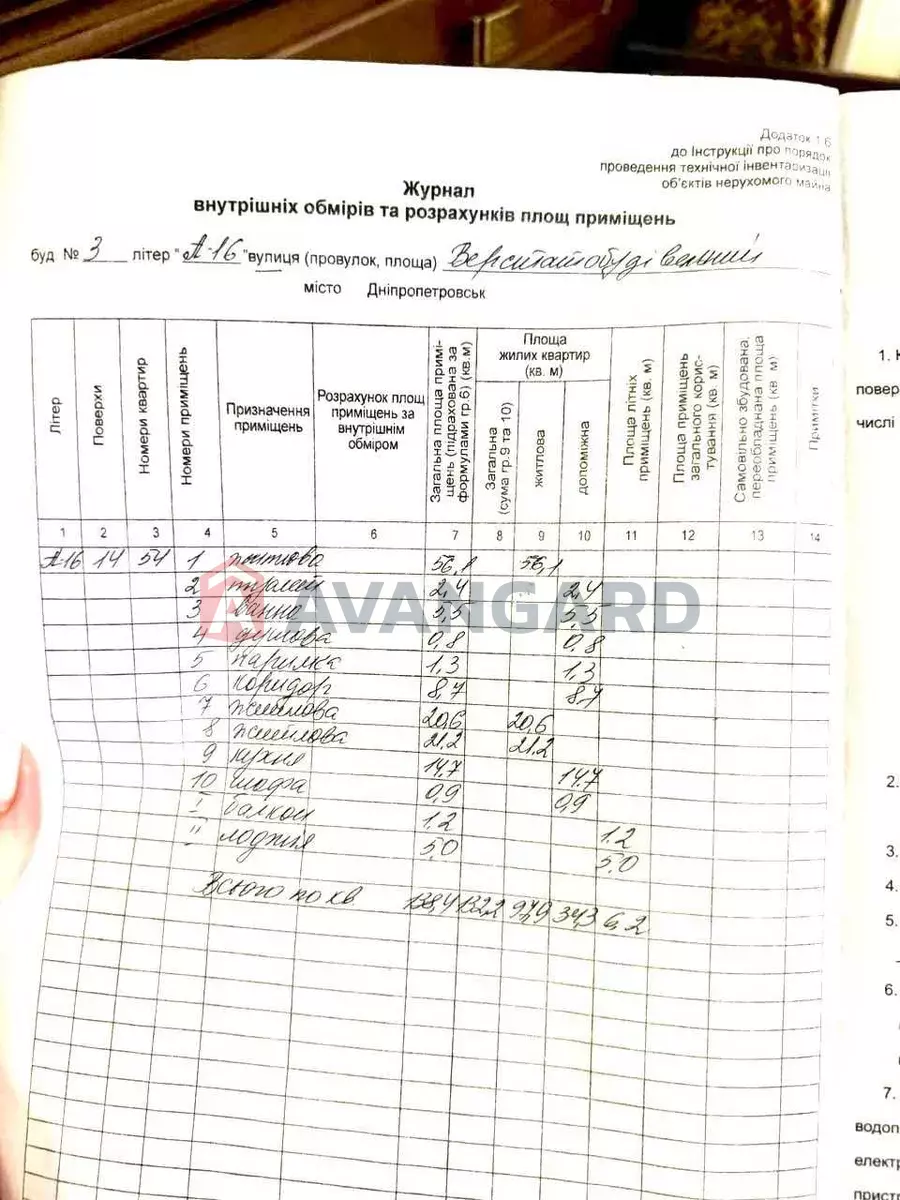 Додаток 1 6
до Інструкції про порядок
проведення технічної інвентаризації
об'єктів нерухомого майна
Журнал
внутрішніх обмірів та розрахунків площ приміщень
буд № 3 літер "А-16" вулиця (провулок, площа) Верстатобудівельний
місто Дніпропетровськ
Літер
Поверхи
Номери квартир
Номери приміщень
Призначення приміщень
Розрахунок площ приміщень за внутрішнім обміром
Загальна площа приміщень (підрахована за формулами гр.6) (кв.м)
Площа жилих квартир (кв. м)
Загальна (сума гр.9 та 10)
житлова
допоміжна
Площа літніх приміщень (кв. м)
Площа приміщень загального користування (кв. м)
Самовільно збудована, переобладнана площа приміщень (кв. м)
Примітки
1 2 3 4 5 6 7 8 9 10 11 12 13 14
А-16 14 54 1 житлова 56,1 56,1
2 туалет 2,4 2,4
3 ванна 5,5 5,5
4 душова 0,8 0,8
5 парилка 1,3 1,3
6 коридор 8,7 8,7
7 житлова 20,6 20,6
8 житлова 21,2 21,2
9 кухня 14,7 14.7
10 шафа 0,9 0,9
I балкон 1.2 1.2
II лоджія 5,0 5.0
Всього по кв 138,4 132,2 97,9 34,3 6,2
AVANGARD
1.
повер
числі
2.
3.
4.
5.
6.
7.
водоп
електр
пристр